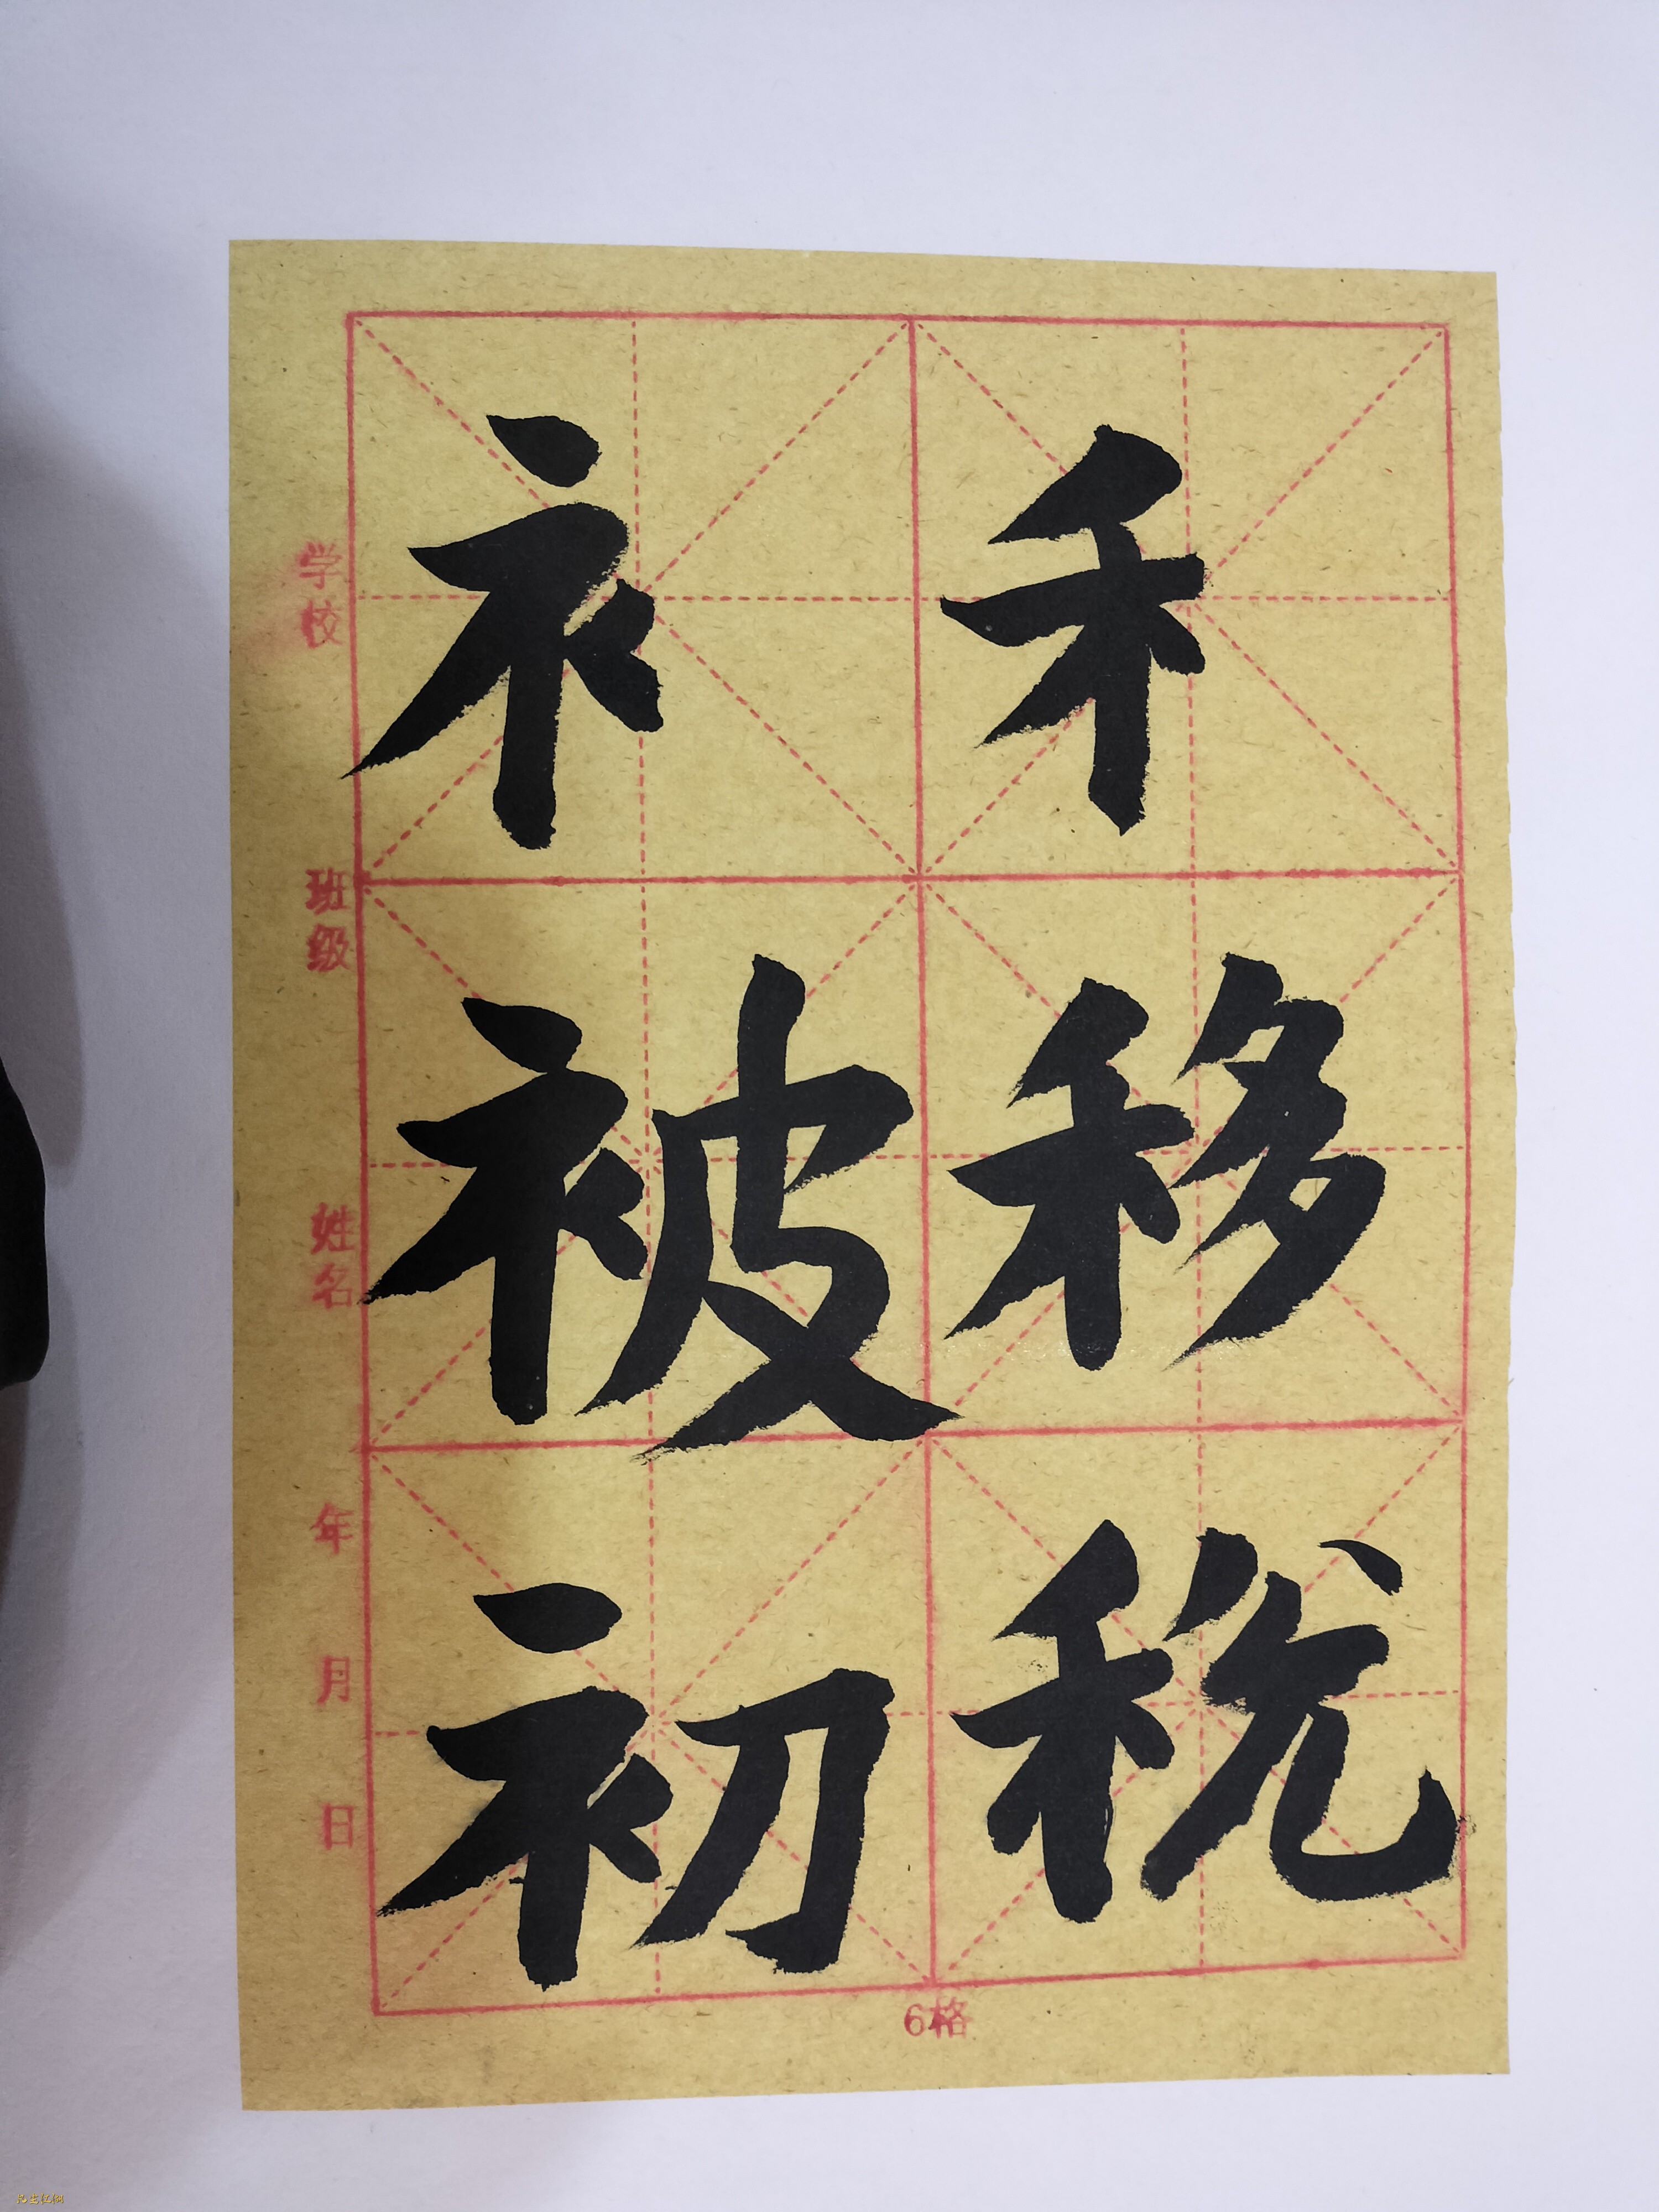 禾移税
衤被初
学校
班级
姓名
年
月
日
6格